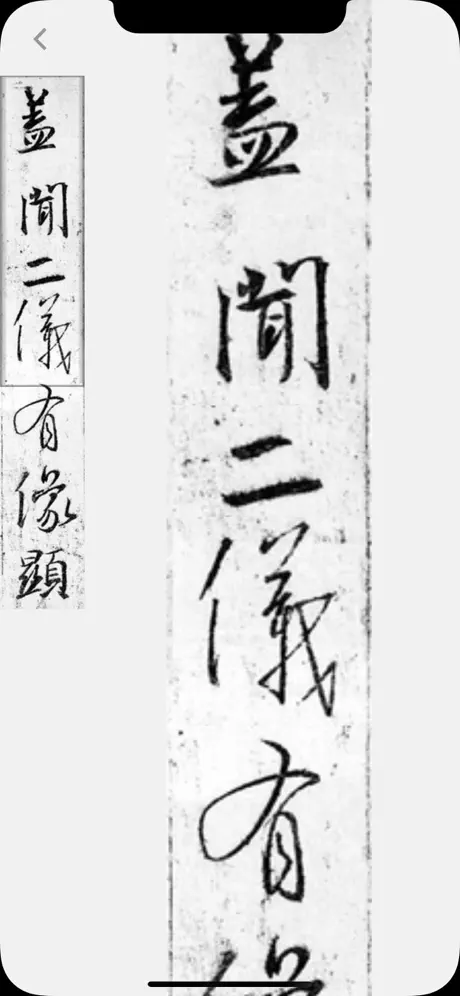 蓋聞二儀有像顯
蓋聞二儀有像